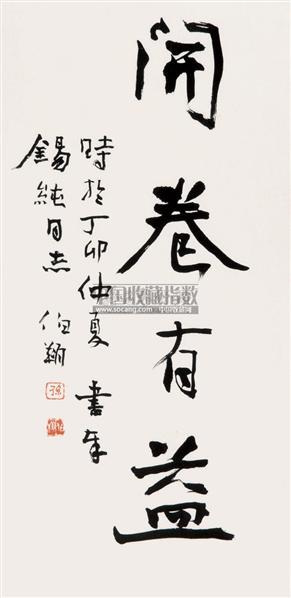 開卷有益
時於丁卯仲夏 書奉
錫純同志 伯翔
孫
中国收藏指数
www.socang.com